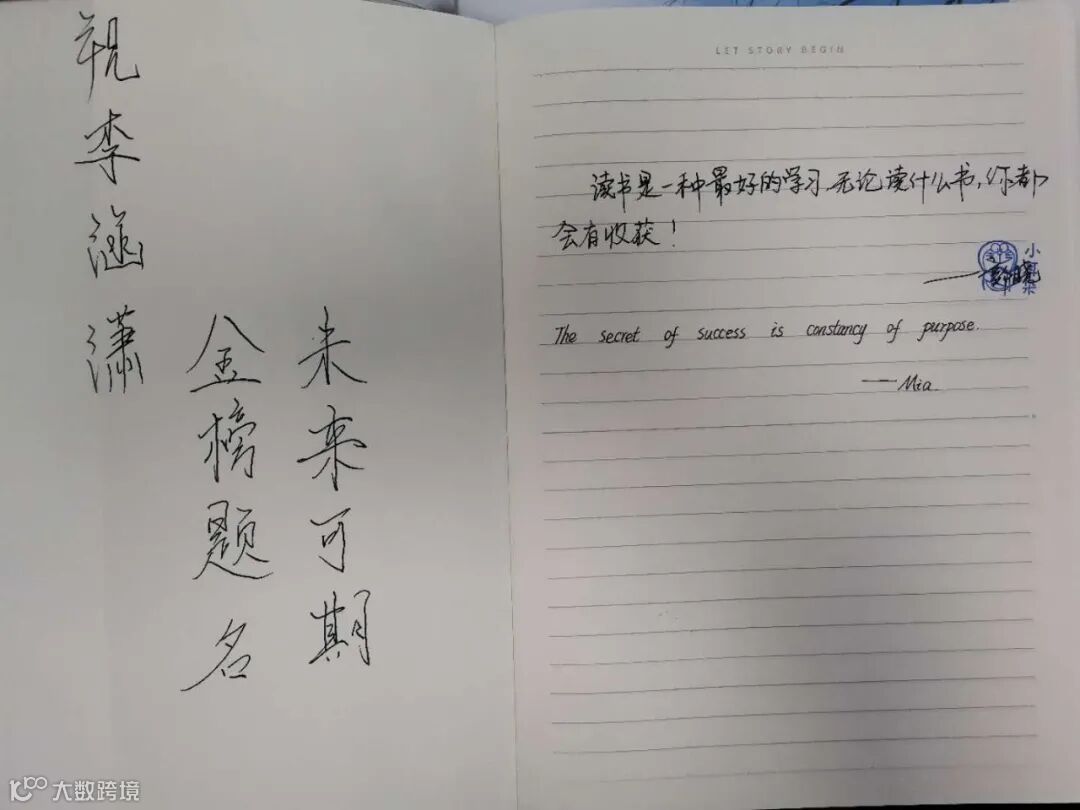 祝李涵潇
金榜题名
未来可期
LET STORY BEGIN
读书是一种最好的学习,无论读什么书,你都
会有收获!
The secret of success is constancy of purpose.
——Mia
大数跨境